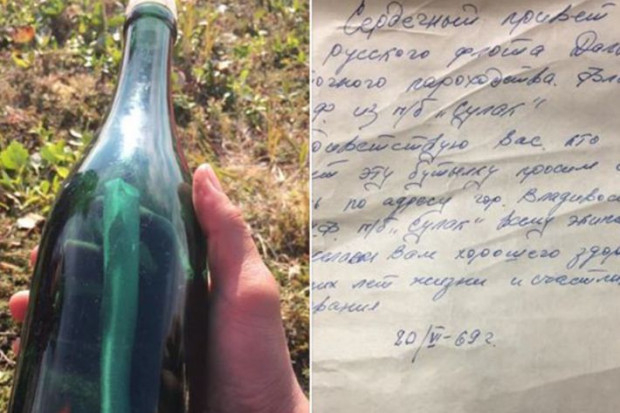 Сердечный привет
русского флота Даль
очного пароходства.
из п/б „Сулак"
ветствую Вас, кто
ет эту бутылку просим
по адресу гор. Владивос
п/б „Сулак" всему экип
желаем Вам хорошего здор
их лет жизни и счастли
20/VI-69 г.